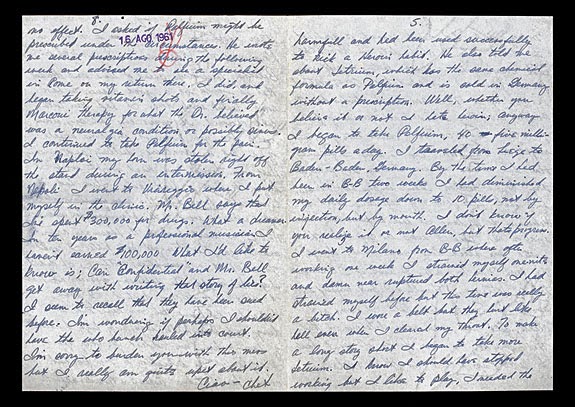 8.
no effect. I asked if Palfium might be
prescribed under the circumstances. He wrote
16 AGO. 1961
me several prescriptions during the following
week and advised me to see a specialist
in Rome on my return there. I did, and
began taking vitamin shots and finally
Marconi therapy for what the Dr. believed
was a neuralgia condition or possibly sinus.
I continued to take Palfium for the pain.
In Naples my horn was stolen right off
the stand during an intermission. From
Napoli I went to Viareggio where I put
myself in the clinic. Mr. Bell says that
I've spent $300,000 for drugs. What a dreamer.
In ten years as a professional musician I
haven't earned $100,000. What I'd like to
know is; Can Confidential and Mr. Bell
get away with writing that story of lies?
I seem to recall that they have been sued
before. I'm wondering if perhaps I shouldn't
have the whole bunch hauled into court.
I'm sorry to burden you with this mess
but I really am quite upset about it.
Ciao - Chet
5.
harmfull and had been used successfully
to kick a Heroin habit. He also told me
about Jetrium, which has the same chemical
formula as Palfium and is sold in Germany
without a prescription. Well, whether you
believe it or not I hate heroin, anyway
I began to take Palfium, 40 - five milli-
gram pills a day. I traveled from Liege to
Baden-Baden, Germany. By the time I had
been in B-B two weeks I had diminished
my daily dosage down to 10 pills, not by
injection, but by mouth. I don't know if
you realize it or not Allen, but thats progress.
I went to Milano from B-B where after
working one week I strained myself
and damn near ruptured both hernias. I had
strained myself before but this time was really
a bitch. I wore a belt but they hurt like
hell even when I cleared my throat. To make
a long story short I began to take more
Jetrium. I know I should have stopped
working but I like to play, I needed the